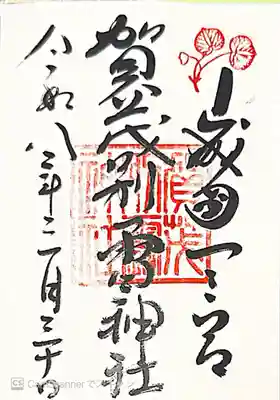 山城国一之宮
賀茂別雷神社
令和八年
CS CamScanner でスキャン